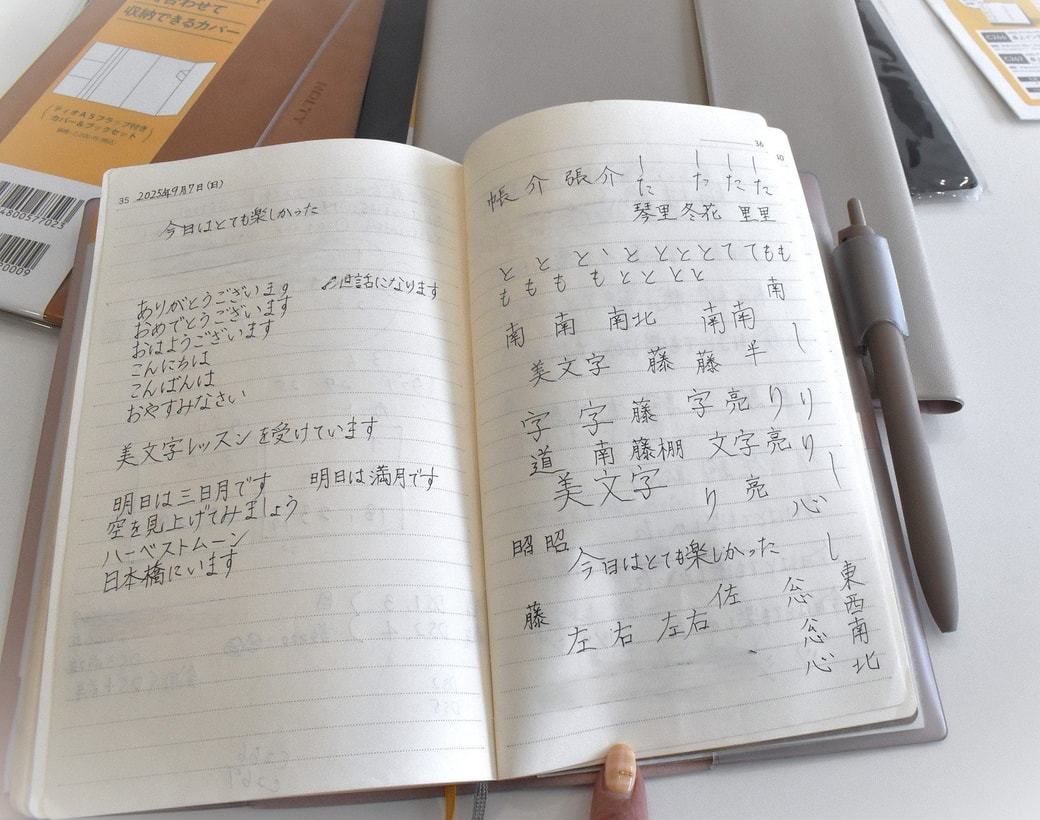 合わせて
収納できるカバー
ティオA5フラップ付き
カバー&ブックセット
NOLTY
4800577023
20009
C266
C267
35 2025年9月7日(日)
今日はとても楽しかった
ありがとうございます
お世話になります
おめでとうございます
おはようございます
こんにちは
こんばんは
おやすみなさい
美文字レッスンを受けています
明日は三日月です 明日は満月です
空を見上げてみましょう
ハーベストムーン
日本橋にいます
36
10
帳 介 張 介 した した した した
琴里 冬花 里里
と と と い と と と と て て も も
も も も も と と と と
南
南 南 南北 南南
美文字 藤 藤 半 し
字 字 藤 字 亮 り り
道 南 藤棚 文字 亮 り
美文字 り 亮 心 し
昭 昭
今日はとても楽しかった し
藤 佐
左 右 左右
心
東
西
南
北